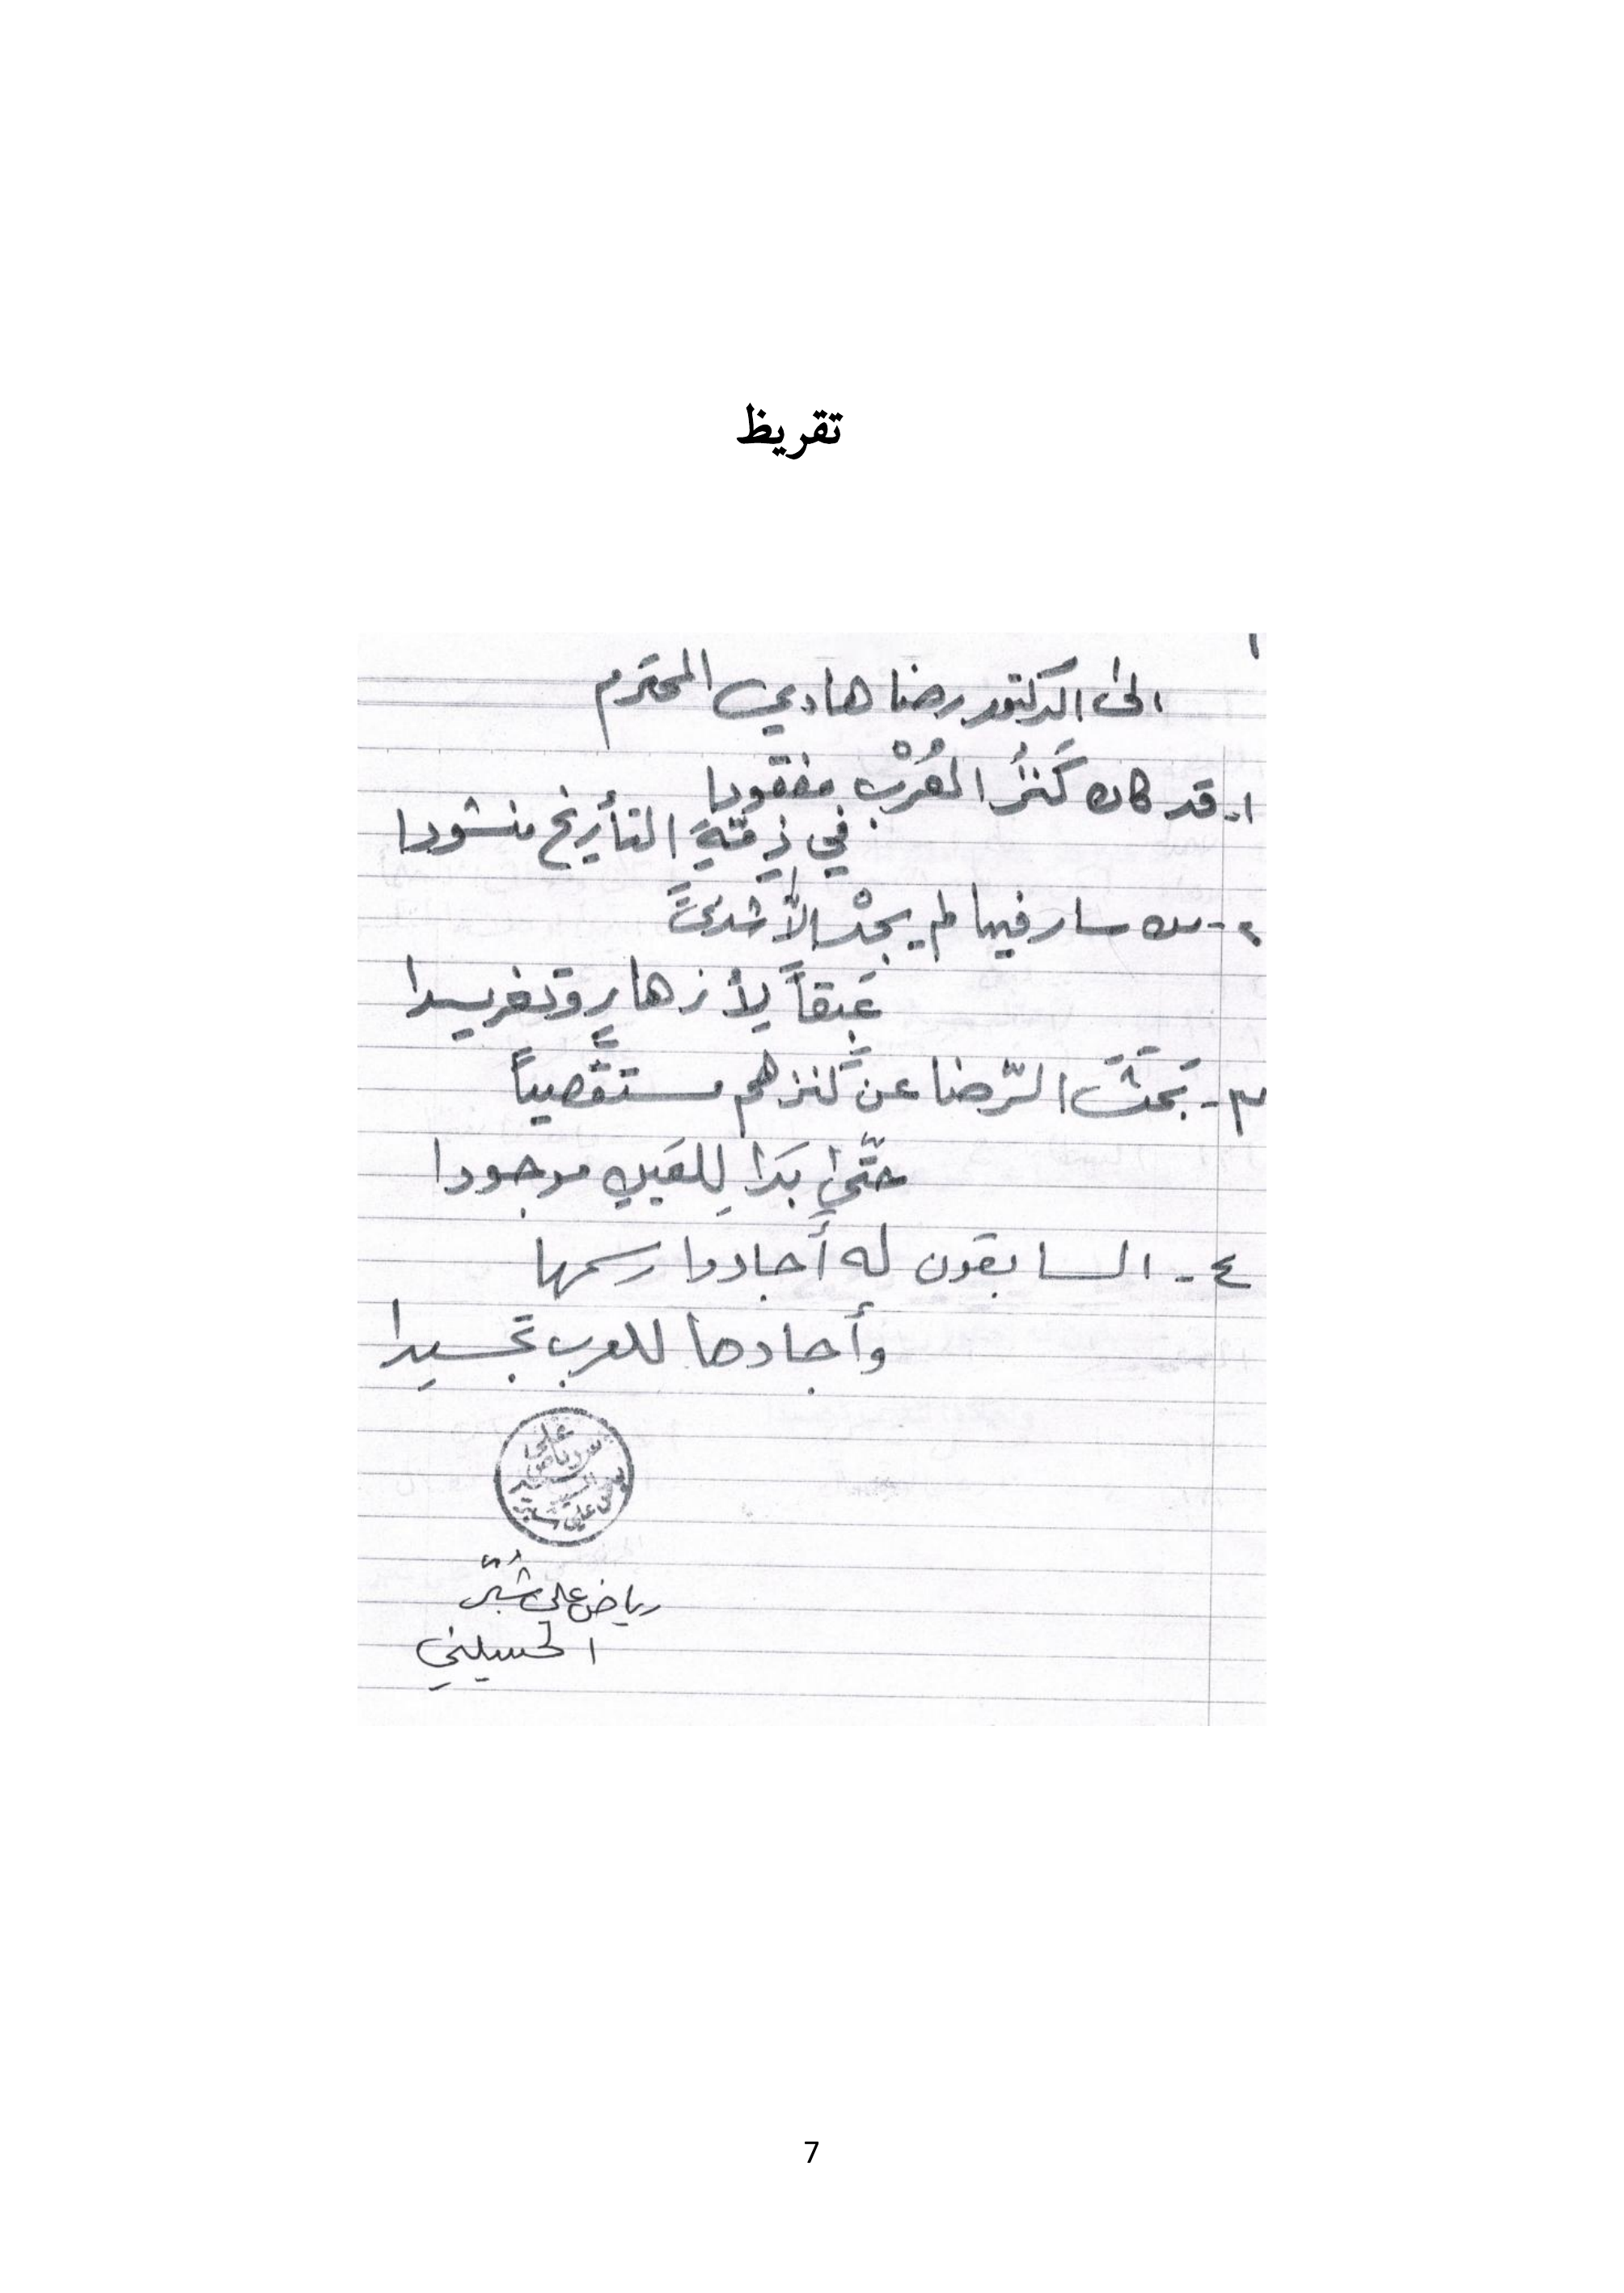 تقريظ
الى الدكتور رضا هادي المحترم
١- قد كان كَنزُ العُرْبِ مفقودا
في ذِمَّةِ التأريخ منشودا
٢- من سار فيها لم يجدْ الاّ شذىً
عَبِقاً لِأزهارٍ وتغريدا
٣- بَحَثَ الرّضا عن كَنزهم مستقصياً
حتّى بَدَا لِلعَينِ موجودا
٤- السابقون له أجادوا رسمها
وأجادها للعرب تجسيدا
علي
رياض
علي شبر
رياض علي شُبّر
الحسيني
7